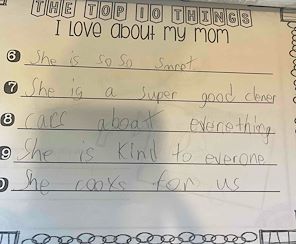 THE TOP 10 THINGS
I LOVE about my mom
6 She is so so smret
7 She is a super good clener
8 cars aboat everething
9 She is Kind to everone
She cooks for us